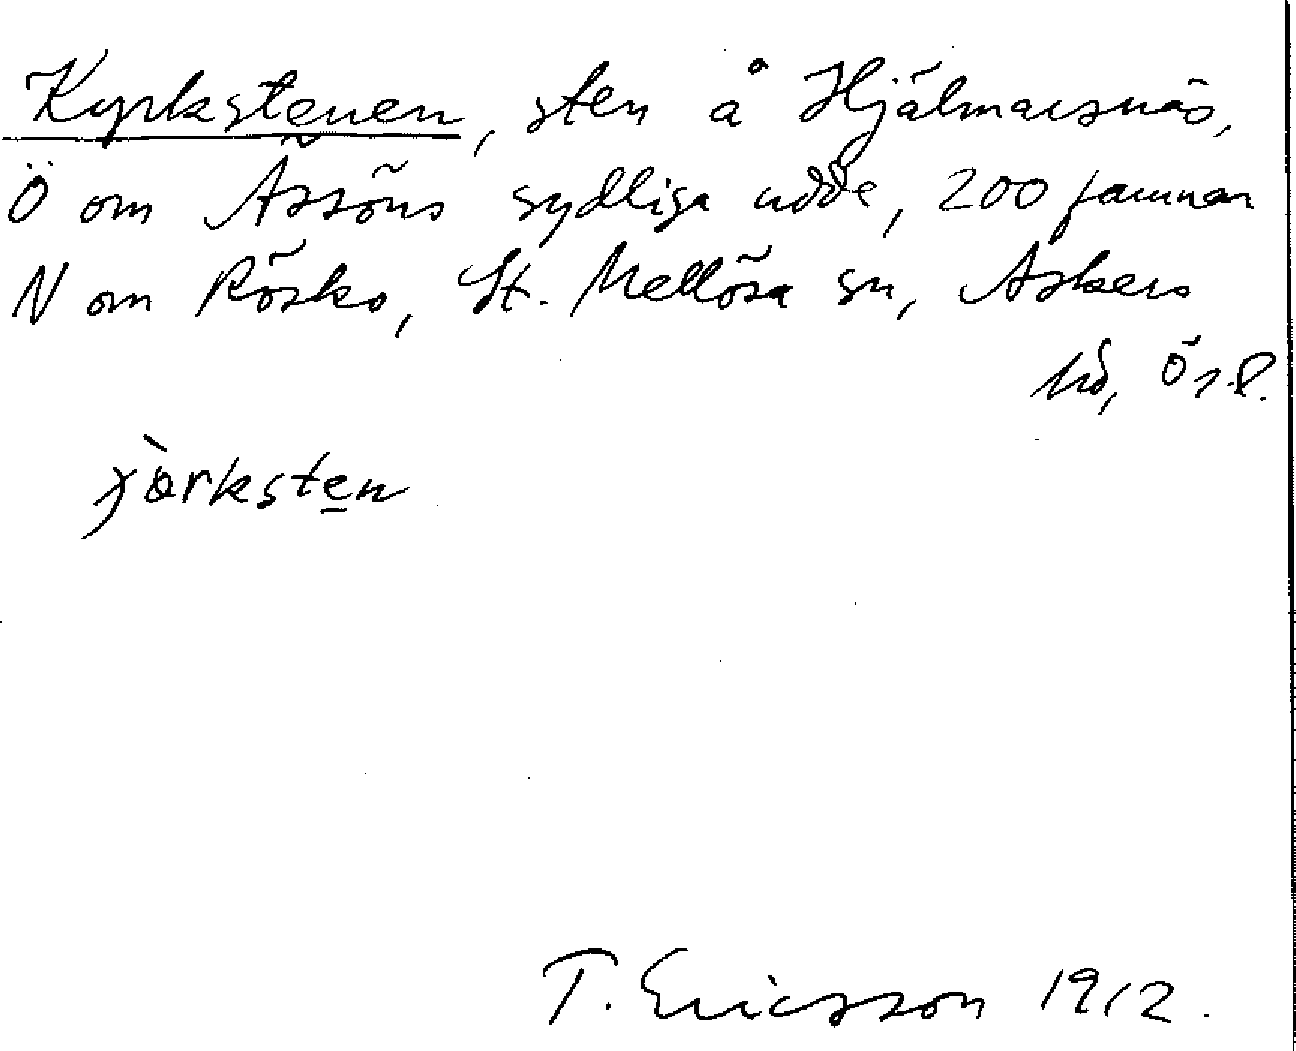 Kyrkstenen, sten å Hjälmarsnäs,
Ö om Ässöns sydliga udde, 200 famnar
N om Rösko, St. Mellösa sn, Askers
hd, Ör.l.
T. Ericsson 1912.